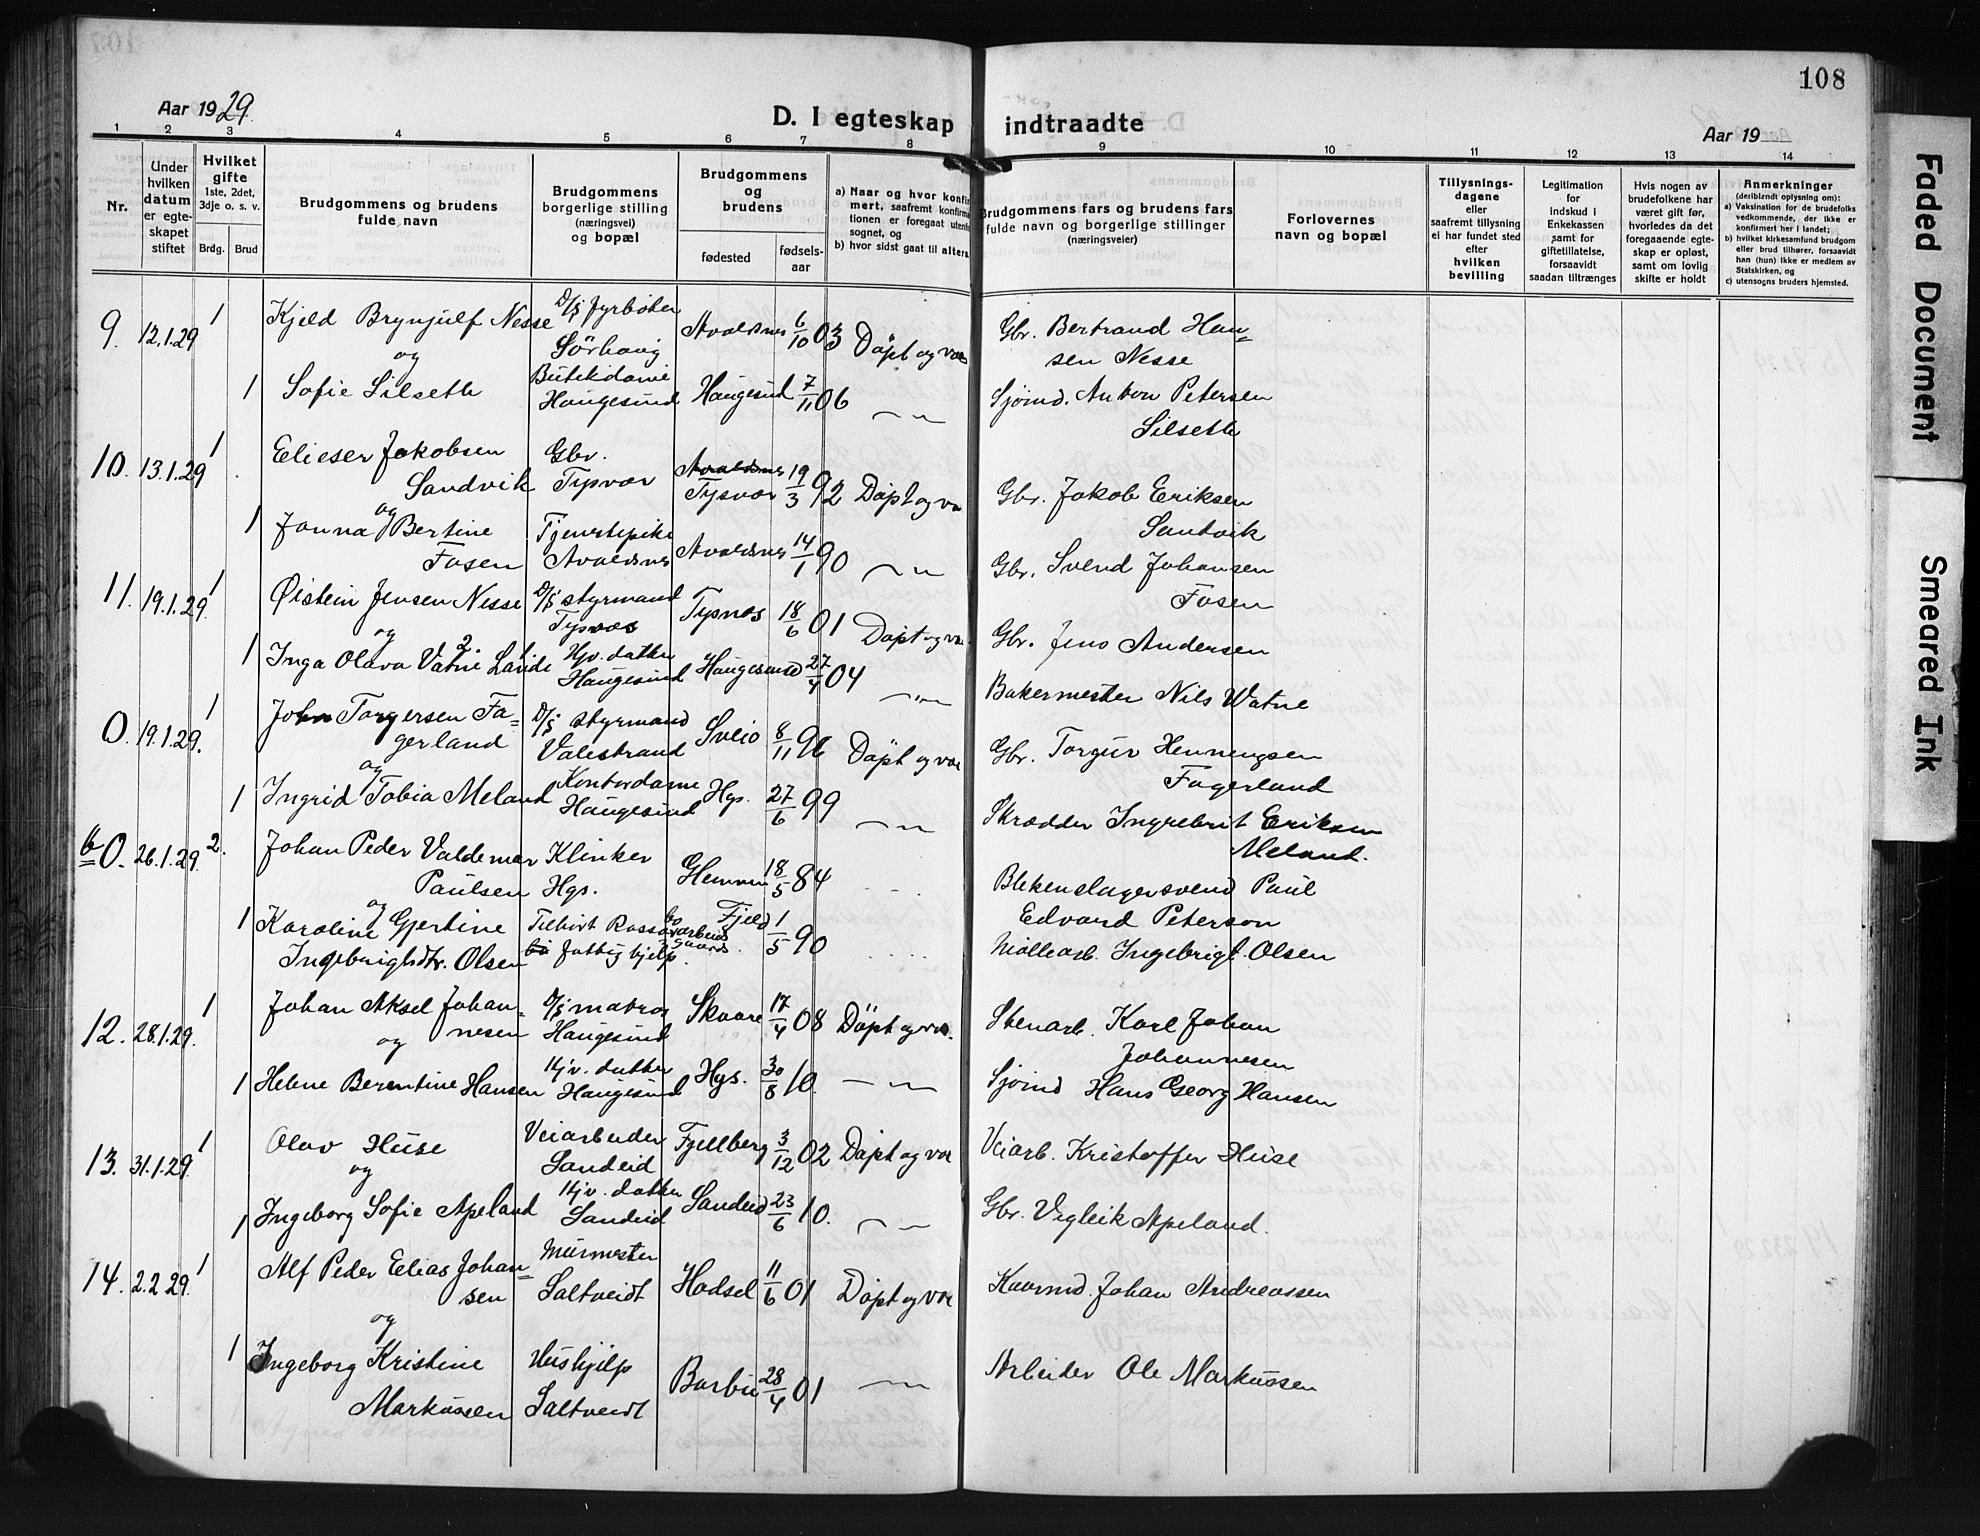 108
Aar 1929.
D. I egteskap indtraadte
Aar 19
1 2 3 4 5 6 7 8 9 10 11 12 13 14
Nr.
Under
hvilken
datum
er egte-
skapet
stiftet
Hvilket
gifte
1ste, 2det,
3dje o. s. v.
Brdg. Brud
Brudgommens og brudens
fulde navn
Brudgommens
borgerlige stilling
(næringsvei)
og bopæl
Brudgommens
og
brudens
fødested
fødsels-
aar
a) Naar og hvor konfir
mert, saafremt konfirma
tionen er foregaat utenfor
sognet, og
b) hvor sidst gaat til alters
Brudgommens fars og brudens fars
fulde navn og borgerlige stillinger
(næringsveier)
Forlovernes
navn og bopæl
Tillysnings-
dagene
eller
saafremt tillysning
ei har fundet sted
efter
hvilken
bevilling
Legitimation
for
indskud i
Enkekassen
samt for
giftetillatelse,
forsaavidt
saadan tiltrænges
Hvis nogen av
brudefolkene har
været gift før,
hvorledes da det
foregaaende egte-
skap er opløst,
samt om lovlig
skifte er holdt
Anmerkninger
(deriblendt oplysning om):
a) Vaksination for de brudefolks
vedkommende, der ikke er
konfirmert her i landet;
b) hvilket kirkesamfund brudgom
eller brud tilhører, forsaavidt
han (hun) ikke er medlem av
Statskirken, og
c) utensogns bruders hjemsted.
9. 12.1.29 1 Kjeld Brynjulf Nesse D/s fyrbøter Avaldsnes 6/10 03 Døpt og vac Gbr. Bertrand Han-
og Sörhaug sen Nesse
1 Sofie Silseth Butikdame Haugesund 7/11 06 — " — Sjømd. Anton Petersen
Haugesund Silseth
10. 13.1.29 1 Elieser Jakobsen Gbr. Avaldsnes 19/3 92 Døpt og va Gbr. Jakob Eriksen
Sandvik Tysvær Tysvær Sandvik
og
1 Jonna Bertine Tjenestepike Avaldsnes 14/1 90 — " — Gbr. Svend Johansen
Fosen Avaldsnes Fosen
11. 19.1.29. 1 Øistein Jensen Nesse D/s styrmand Tysnes 18/6 01 Døpt og va. Gbr. Jens Andersen
og Tysvær
1 Inga Olava Vatne Lande Hjv. datter Haugesund 27/4 04 — " — Bakermester Nils Watne
2. 1 Haugesund
0. 19.1.29. 1 John Torgersen Fa- D/s styrmand Sveio 8/11 96 Døpt og vac Gbr. Torgur Henningsen
gerland Valestrand Fagerland
og
1 Ingrid Tobia Meland Kontordame Hgs. 27/6 99 — " — Skrædder Ingrebrit Eriksen
Haugesund Meland.
b 0. 26.1.29 2. Johan Peder Valdemar Klinker Glemmen 18/5 84 Blekenslagersvend Paul
Paulsen Hgs. Edvard Peterson
og
1 Karoline Gjertine Tilhört Rossa Fjeld 1/5 90 Mölleatb. Ingebrigt Olsen
Ingebrigtsdtr. Olsen fattighjelp.
12. 28.1.29. 1 Johan Aksel Johan- D/s matros Skaare 17/4 08 Døpt og vac. Stenarb. Karl Johan
nesen Haugesund Johannesen
og
1 Helene Berentine Hansen Hjv. datter Hgs. 30/8 10. — " — Sjømd Hans Georg Hansen
Haugesund
13. 31.1.29. 1 Olav Huse Veiarbeider Fjellberg 3/12 02 Døpt og vac Veiarb. Kristoffer Huse
og Sandeid
1 Ingeborg Sofie Apeland Hjv. datter Sandeid 23/6 10. — " — Gbr. Vigleik Apeland.
Sandeid
14. 2.2.29. 1 Alf Peder Elias Johan- Murmester Hadsel 11/6 01 Døpt og vac Kaarmd. Johan Andreassen
sen Saltveidt
og
1 Ingeborg Kristine Hushjelp Barbu 28/4 01 — " — Arbeider Ole Markussen
Markussen Saltveidt
Faded Document
Smeared Ink